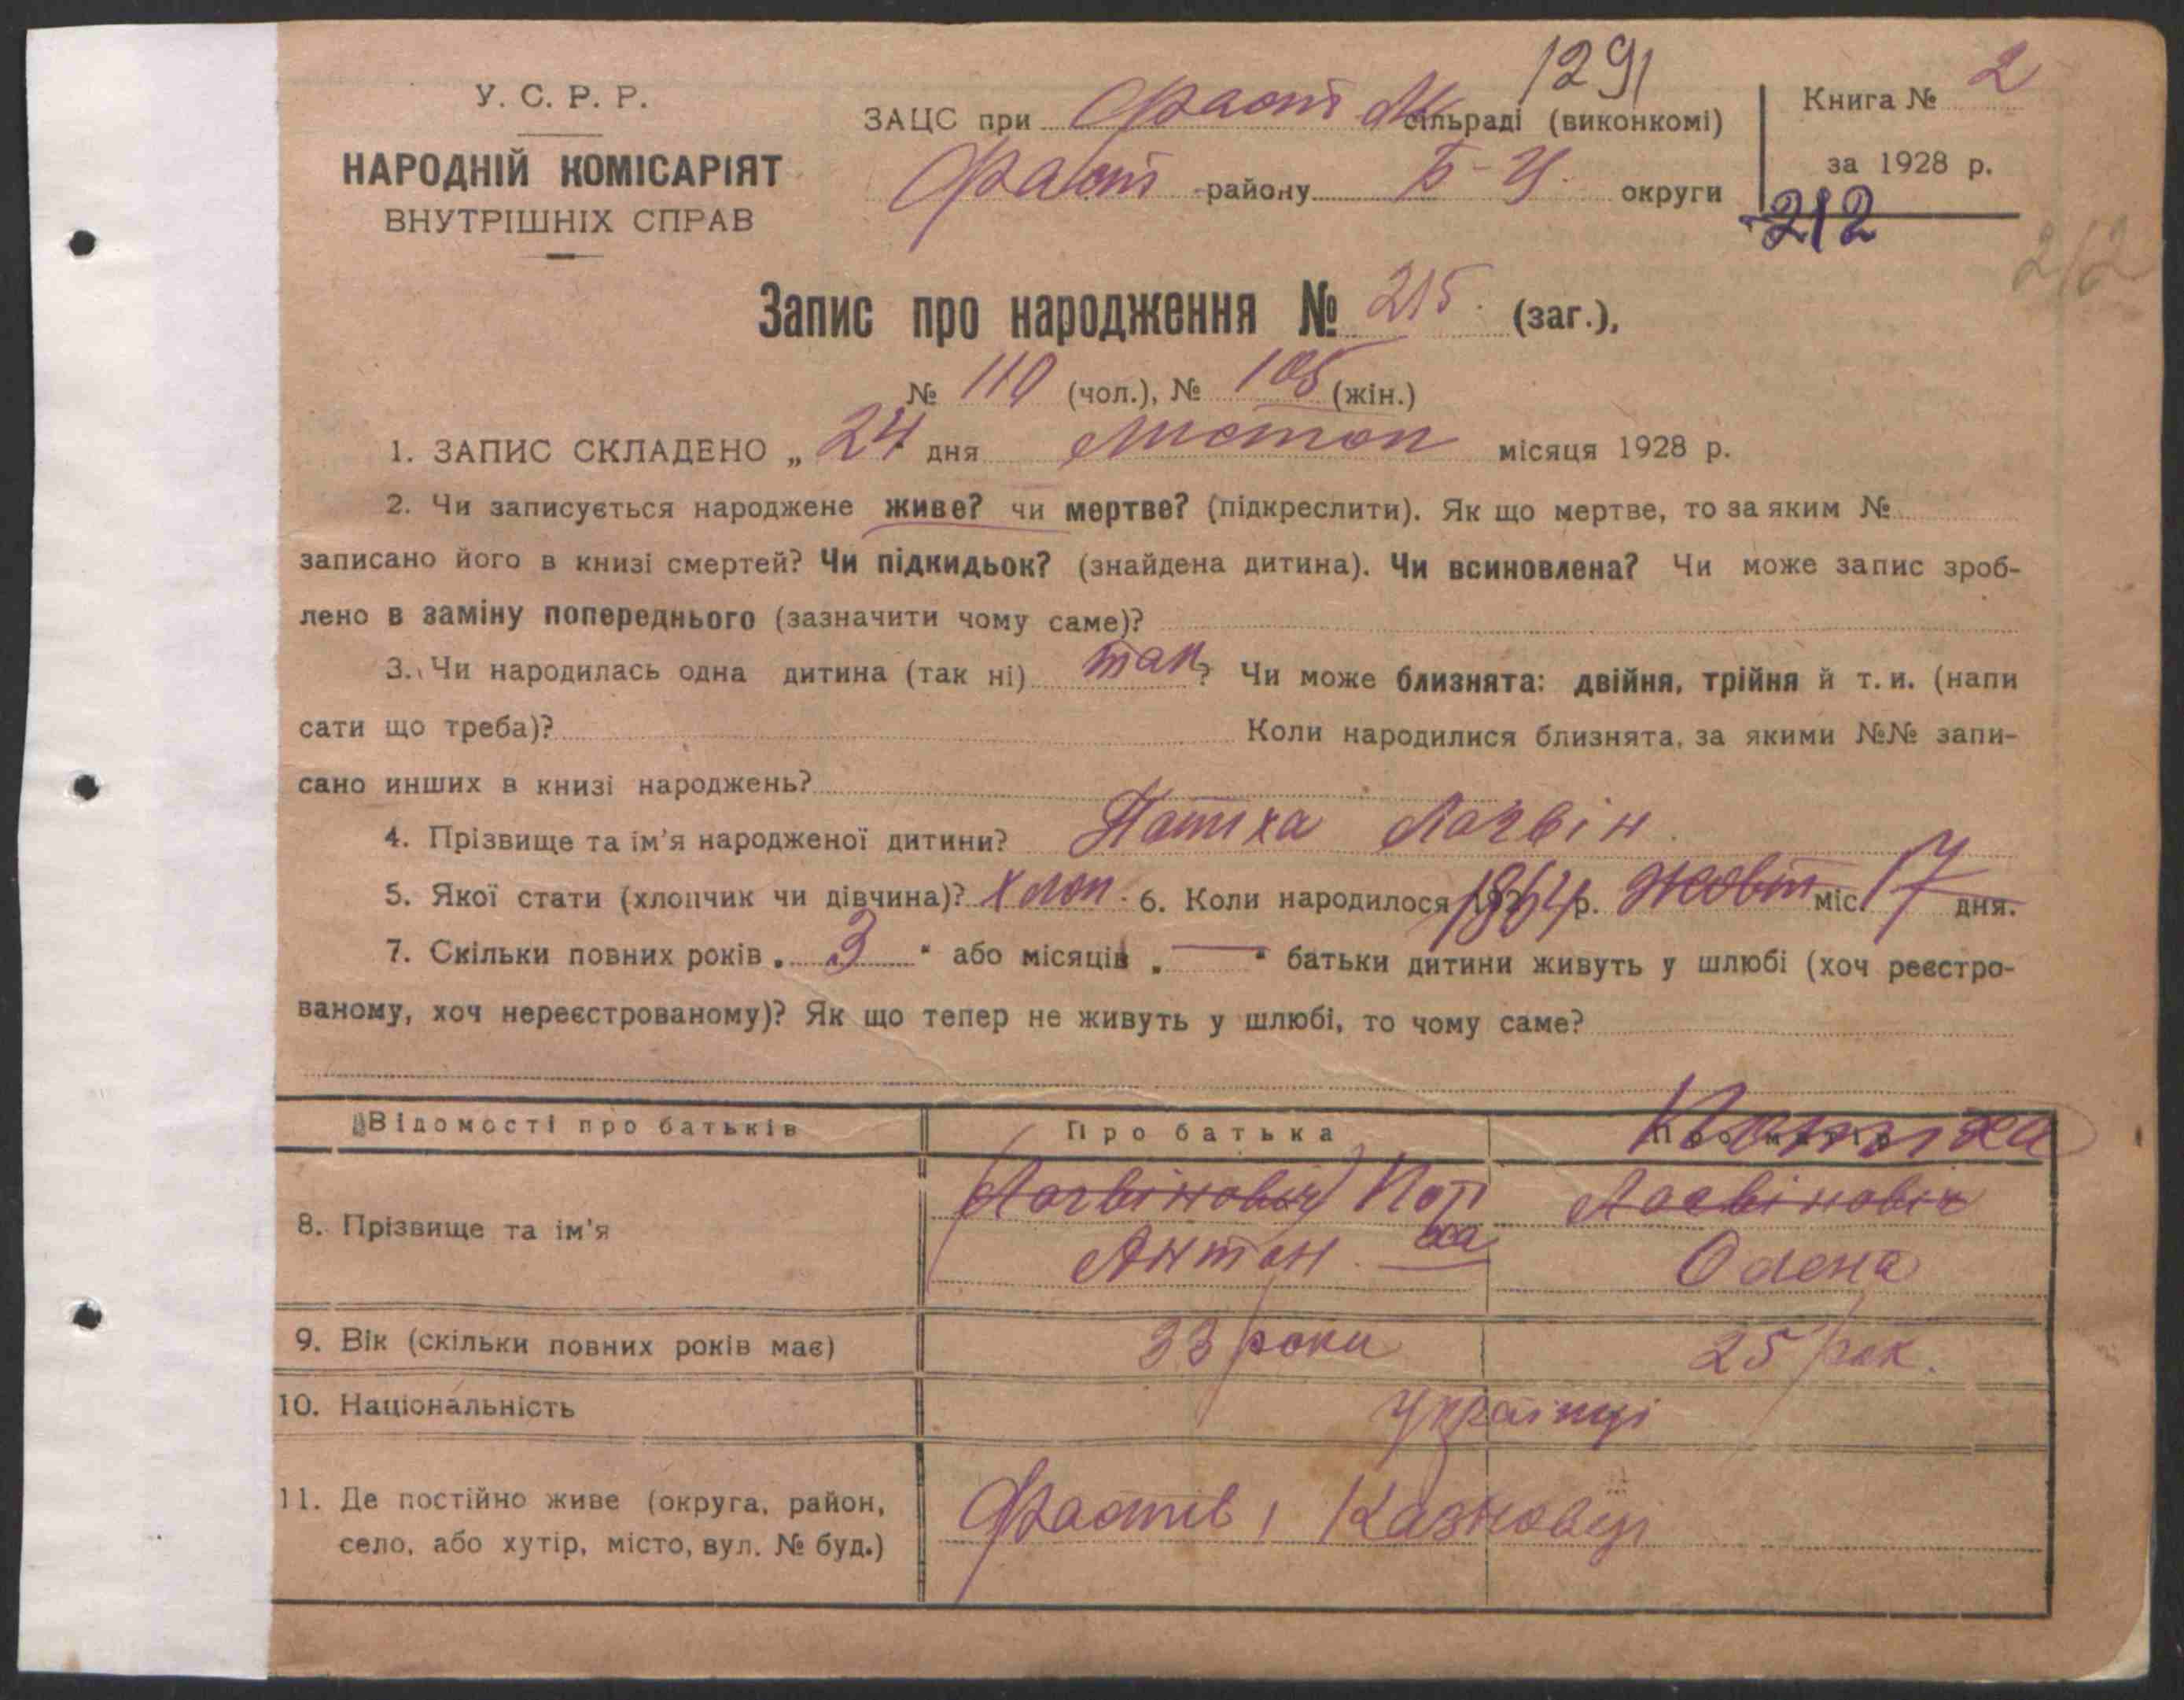 1291
У. С. Р. Р.
НАРОДНІЙ КОМІСАРІЯТ
ВНУТРІШНІХ СПРАВ
ЗАЦС при Фаст сільраді (виконкомі)
Фаст району Б-Ц. округи
Книга № 2
за 1928 р.
212
212
Запис про народження № 215 (заг.),
№ 110 (чол.), № 105 (жін.)
1. ЗАПИС СКЛАДЕНО „ 24 дня Листоп місяця 1928 р.
2. Чи записується народжене живе? чи мертве? (підкреслити). Як що мертве, то за яким №
записано його в книзі смертей? Чи підкидьок? (знайдена дитина). Чи всиновлена? Чи може запис зроб-
лено в заміну попереднього (зазначити чому саме)?
3. Чи народилась одна дитина (так ні) так? Чи може близнята: двійня, трійня й т. и. (напи
сати що треба)? Коли народилися близнята, за якими №№ запи-
сано инших в книзі народжень?
4. Прізвище та ім'я народженої дитини? Потіха Логвін
5. Якої стати (хлопчик чи дівчина)? Хлоп. 6. Коли народилося р. Жовт міс. 17 дня.
7. Скільки повних років „ 3 “ або місяців „ — “ батьки дитини живуть у шлюбі (хоч реєстро-
ваному, хоч нереєстрованому)? Як що тепер не живуть у шлюбі, то чому саме?
Відомості про батьків Про батька Про матір
Потіха
8. Прізвище та ім'я Логвінович Поті Логвінович
ха
Антон Олена
9. Вік (скільки повних років має) 33 роки 25 рок.
10. Національність Українці
11. Де постійно живе (округа, район, Фастів,
село, або хутір, місто, вул. № буд.)